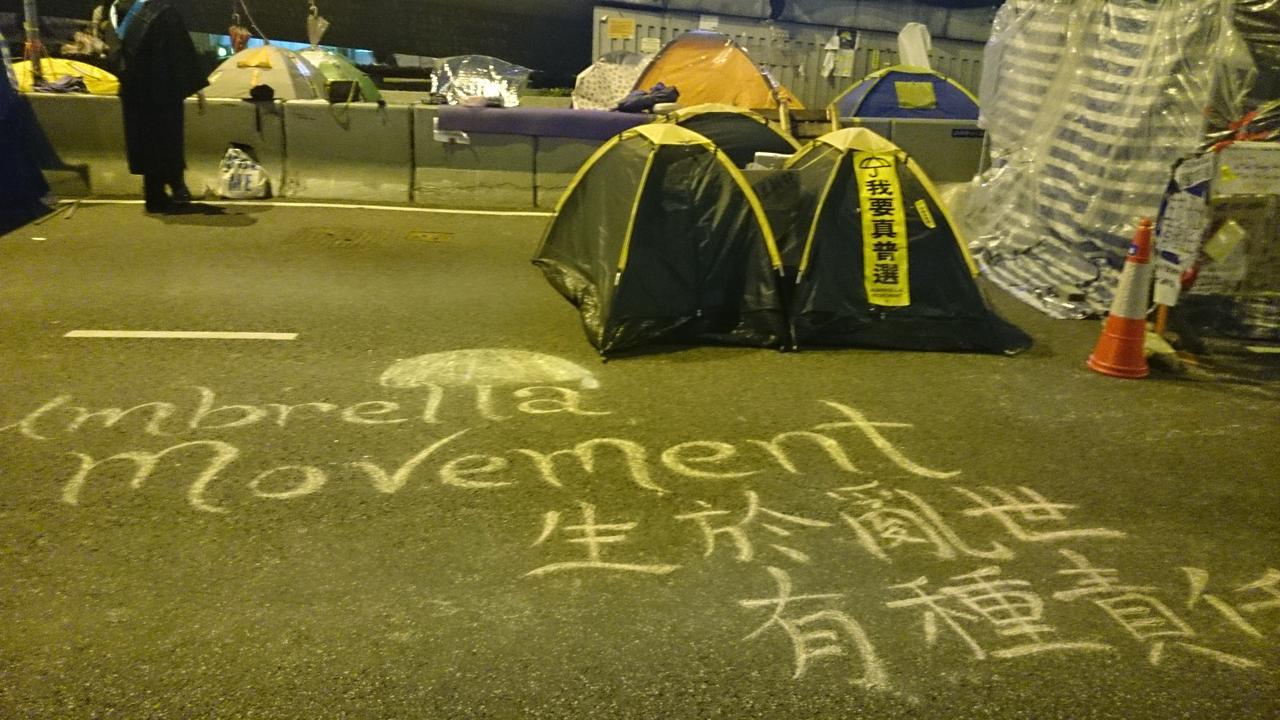 我要真普選
UMBRELLA
MOVEMENT
Umbrella
Movement
生於亂世
有種責任